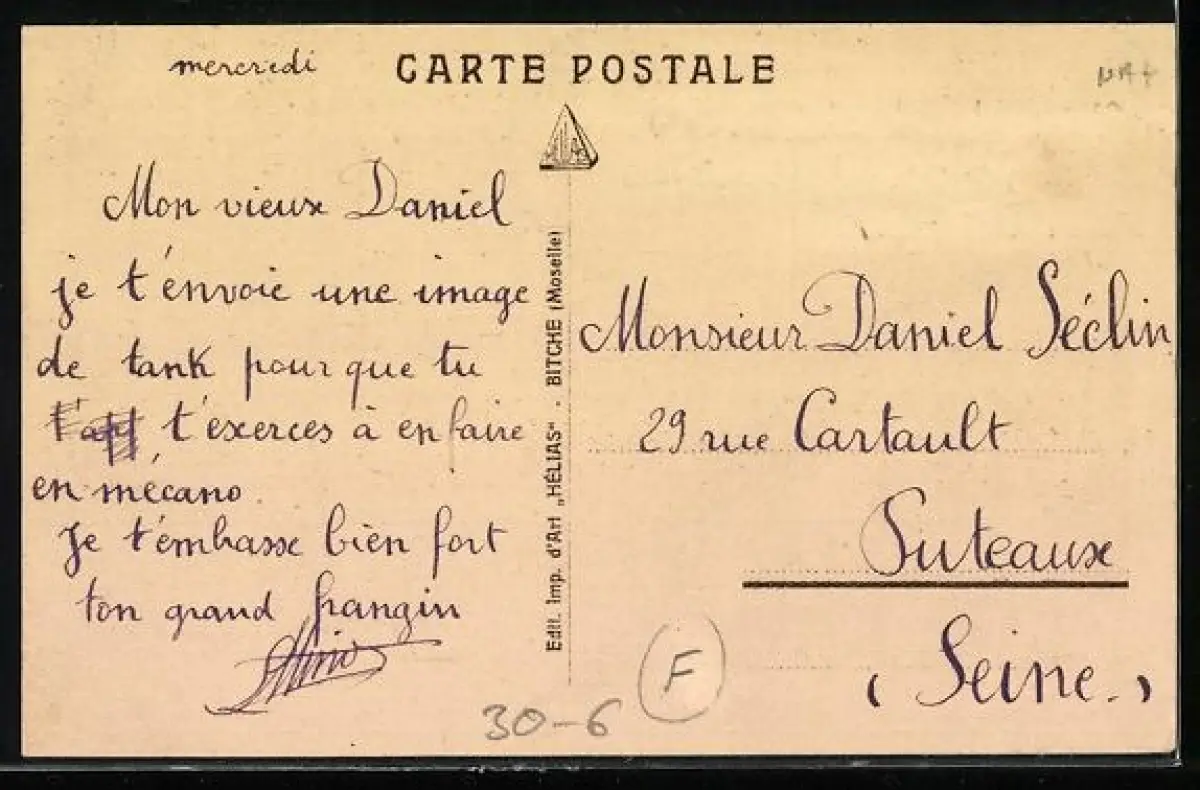 mercredi
CARTE POSTALE
Mon vieux Daniel
je t'énvoie une image
de tank pour que tu
t'exerces à en faire
en mécano.
Je t'émbasse bien fort
ton grand frangin
Edit. Imp. d'Art „HÉLIAS". BITCHE (Moselle)
Monsieur Daniel Séclin
29 rue Cartault
Puteaux
(Seine.)
30-6
F